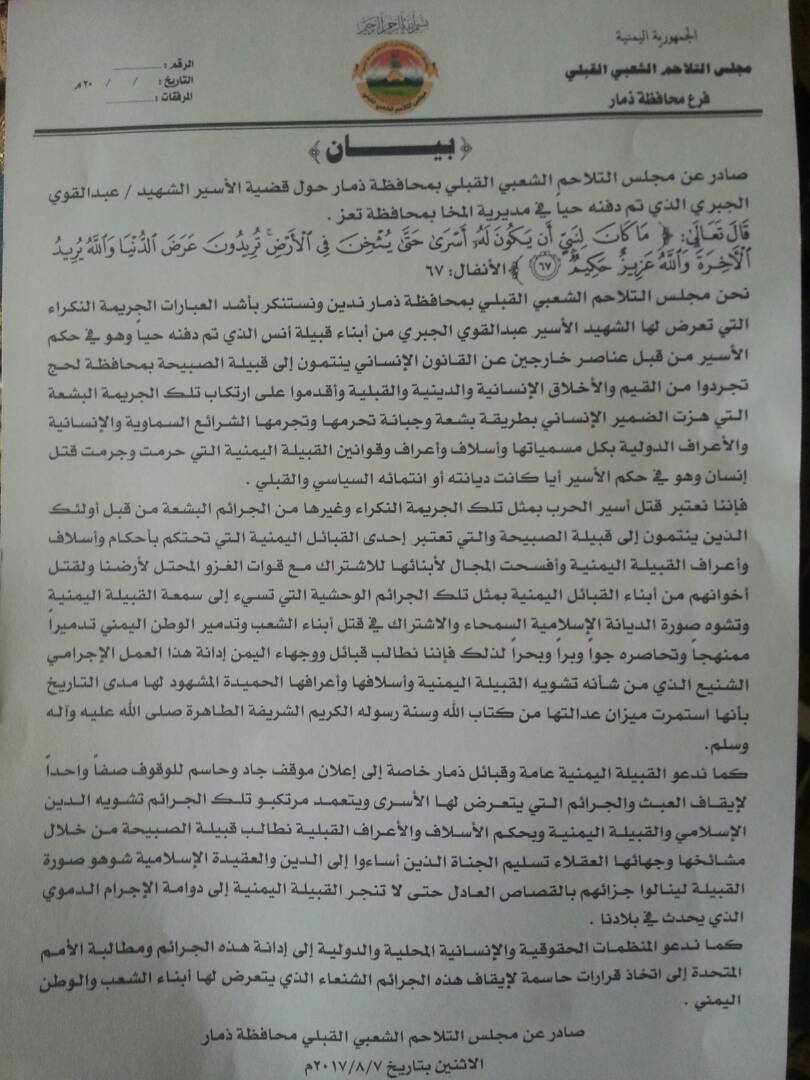 بسم الله الرحمن الرحيم
الجمهورية اليمنية
مجلس التلاحم الشعبي القبلي
فرع محافظة ذمار
الرقم :
التاريخ : / / ٢٠م
المرفقات :
﴿ بيـــــان ﴾
صادر عن مجلس التلاحم الشعبي القبلي بمحافظة ذمار حول قضية الأسير الشهيد / عبدالقوي
الجبري الذي تم دفنه حياً في مديرية المخا بمحافظة تعز .
قَالَ تَعَالَىٰ: ﴿ مَا كَانَ لِنَبِيٍّ أَن يَكُونَ لَهُۥ أَسْرَىٰ حَتَّىٰ يُثْخِنَ فِي ٱلْأَرْضِ ۚ تُرِيدُونَ عَرَضَ ٱلدُّنْيَا وَٱللَّهُ يُرِيدُ
ٱلْآخِرَةَ ۗ وَٱللَّهُ عَزِيزٌ حَكِيمٌ ﴿٦٧﴾ ﴾ الأنفال: ٦٧
نحن مجلس التلاحم الشعبي القبلي بمحافظة ذمار ندين ونستنكر بأشد العبارات الجريمة النكراء
التي تعرض لها الشهيد الأسير عبدالقوي الجبري من أبناء قبيلة أنس الذي تم دفنه حياً وهو في حكم
الأسير من قبل عناصر خارجين عن القانون الإنساني ينتمون إلى قبيلة الصبيحة بمحافظة لحج
تجردوا من القيم والأخلاق الإنسانية والدينية والقبلية وأقدموا على ارتكاب تلك الجريمة البشعة
التي هزت الضمير الإنساني بطريقة بشعة وجبانة تحرمها وتجرمها الشرائع السماوية والإنسانية
والأعراف الدولية بكل مسمياتها وأسلاف وأعراف وقوانين القبيلة اليمنية التي حرمت وجرمت قتل
إنسان وهو في حكم الأسير أيا كانت ديانته أو انتمائه السياسي والقبلي .
فإننا نعتبر قتل أسير الحرب بمثل تلك الجريمة النكراء وغيرها من الجرائم البشعة من قبل أولئك
الذين ينتمون إلى قبيلة الصبيحة والتي تعتبر إحدى القبائل اليمنية التي تحتكم بأحكام وأسلاف
وأعراف القبيلة اليمنية وأفسحت المجال لأبنائها للاشتراك مع قوات الغزو المحتل لأرضنا ولقتل
أخوانهم من أبناء القبائل اليمنية بمثل تلك الجرائم الوحشية التي تسيء إلى سمعة القبيلة اليمنية
وتشوه صورة الديانة الإسلامية السمحاء والاشتراك في قتل أبناء الشعب وتدمير الوطن اليمني تدميراً
ممنهجاً وتحاصره جواً وبراً وبحراً لذلك فإننا نطالب قبائل ووجهاء اليمن إدانة هذا العمل الإجرامي
الشنيع الذي من شأنه تشويه القبيلة اليمنية وأسلافها وأعرافها الحميدة المشهود لها مدى التاريخ
بأنها استمرت ميزان عدالتها من كتاب الله وسنة رسوله الكريم الشريفة الطاهرة صلى الله عليه وآله
وسلم.
كما ندعو القبيلة اليمنية عامة وقبائل ذمار خاصة إلى إعلان موقف جاد وحاسم للوقوف صفاً واحداً
لإيقاف العبث والجرائم التي يتعرض لها الأسرى ويتعمد مرتكبو تلك الجرائم تشويه الدين
الإسلامي والقبيلة اليمنية وبحكم الأسلاف والأعراف القبلية نطالب قبيلة الصبيحة من خلال
مشائخها وجهائها العقلاء تسليم الجناة الذين أساءوا إلى الدين والعقيدة الإسلامية شوهو صورة
القبيلة لينالوا جزائهم بالقصاص العادل حتى لا تنجر القبيلة اليمنية إلى دوامة الإجرام الدموي
الذي يحدث في بلادنا .
كما ندعو المنظمات الحقوقية والإنسانية المحلية والدولية إلى إدانة هذه الجرائم ومطالبة الأمم
المتحدة إلى اتخاذ قرارات حاسمة لإيقاف هذه الجرائم الشنعاء الذي يتعرض لها أبناء الشعب والوطن
اليمني .
صادر عن مجلس التلاحم الشعبي القبلي محافظة ذمار
الاثنين بتاريخ ٢٠١٧/٨/٧م